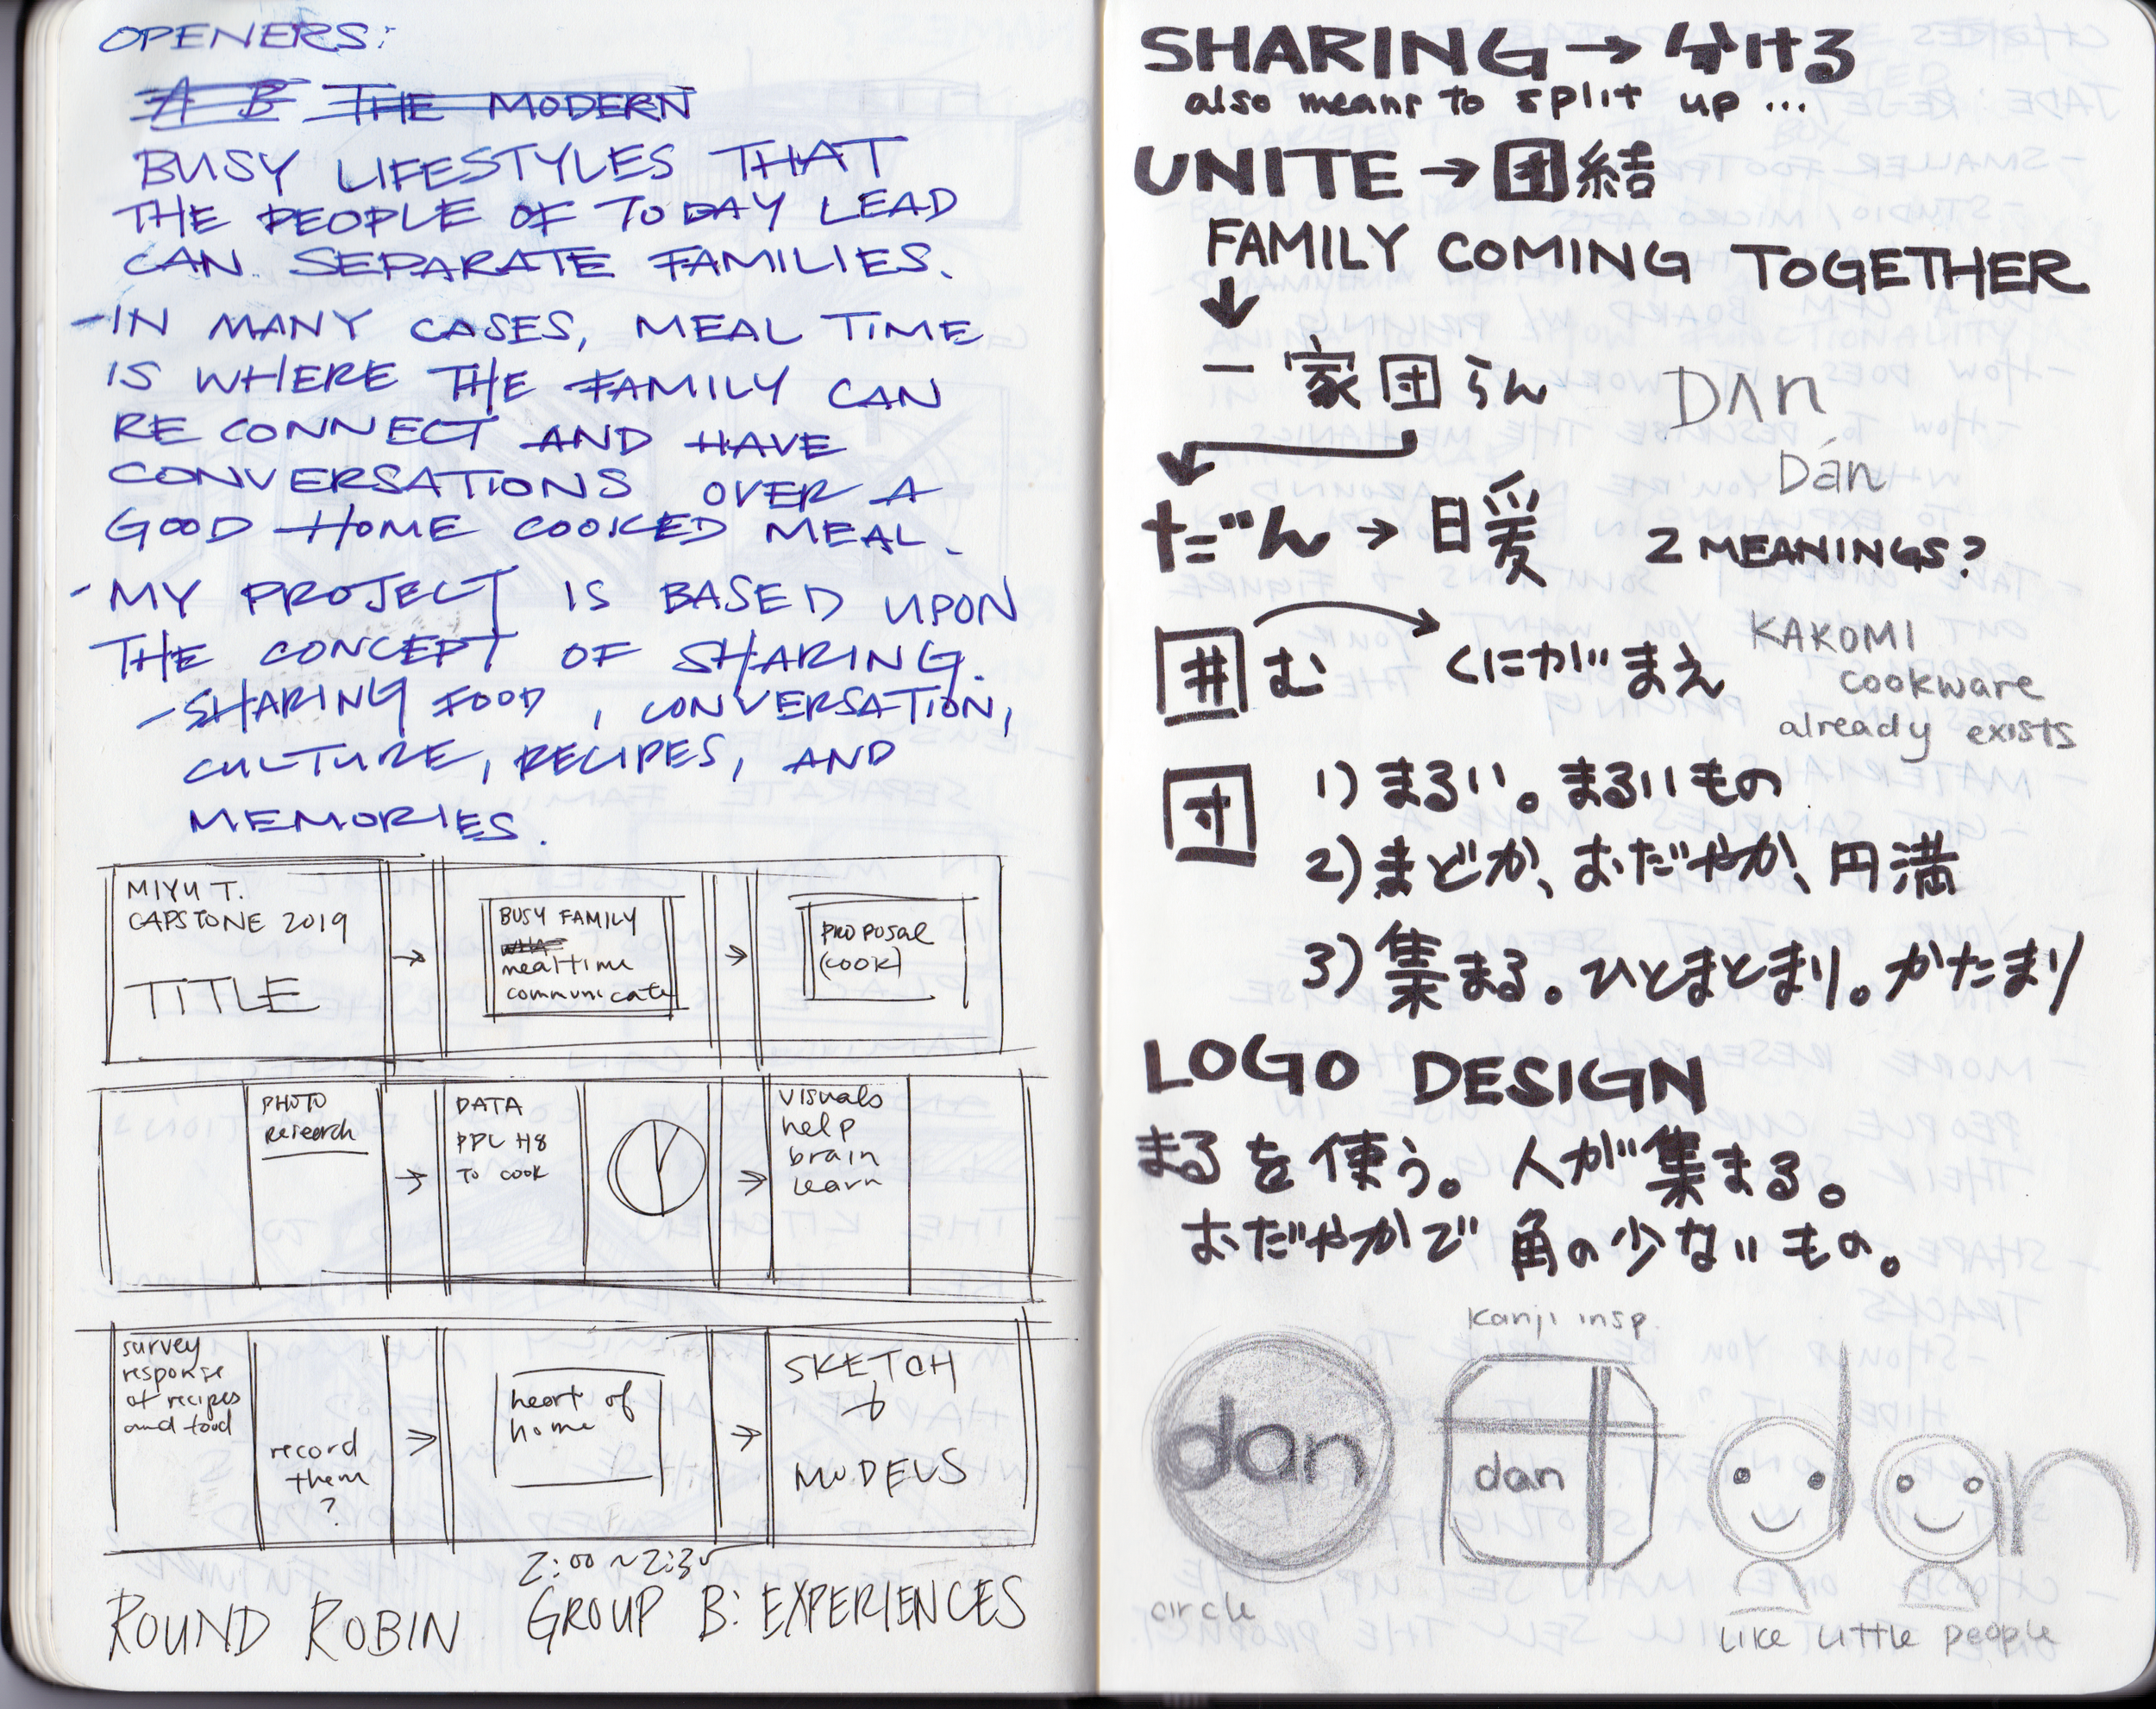 OPENERS:
A B THE MODERN
BUSY LIFESTYLES THAT
THE PEOPLE OF TODAY LEAD
CAN SEPARATE FAMILIES.
-IN MANY CASES, MEAL TIME
IS WHERE THE FAMILY CAN
RE CONNECT AND HAVE
CONVERSATIONS OVER A
GOOD HOME COOKED MEAL.
-MY PROJECT IS BASED UPON
THE CONCEPT OF SHARING.
-SHARING FOOD, CONVERSATION,
CULTURE, RECIPES, AND
MEMORIES.
MIYU T.
CAPSTONE 2019
TITLE
→
BUSY FAMILY
mealtime
communicate
→
PROPOSAL
(COOK)
PHOTO
research
→
DATA
PPL H8
TO COOK
→
visuals
help
brain
learn
survey
response
of recipes
and food
record
them
?
→
heart of
home
→
SKETCH
+
MODELS
2:00~2:35
ROUND ROBIN GROUP B: EXPERIENCES
SHARING → 分ける
also means to split up...
UNITE → 団結
FAMILY COMING TOGETHER
一家団らん
DAN
Dán
だん → 日暖 2 MEANINGS?
囲む くにがまえ
KAKOMI
cookware
already exists
団 1) まるい。まるいもの
2) まどか、おだやか、円満
3) 集まる。ひとまとまり。かたまり
LOGO DESIGN
まるを使う。人が集まる。
おだやかで角の少ないもの。
kanji insp.
dan
dan
dan
circle
like little people